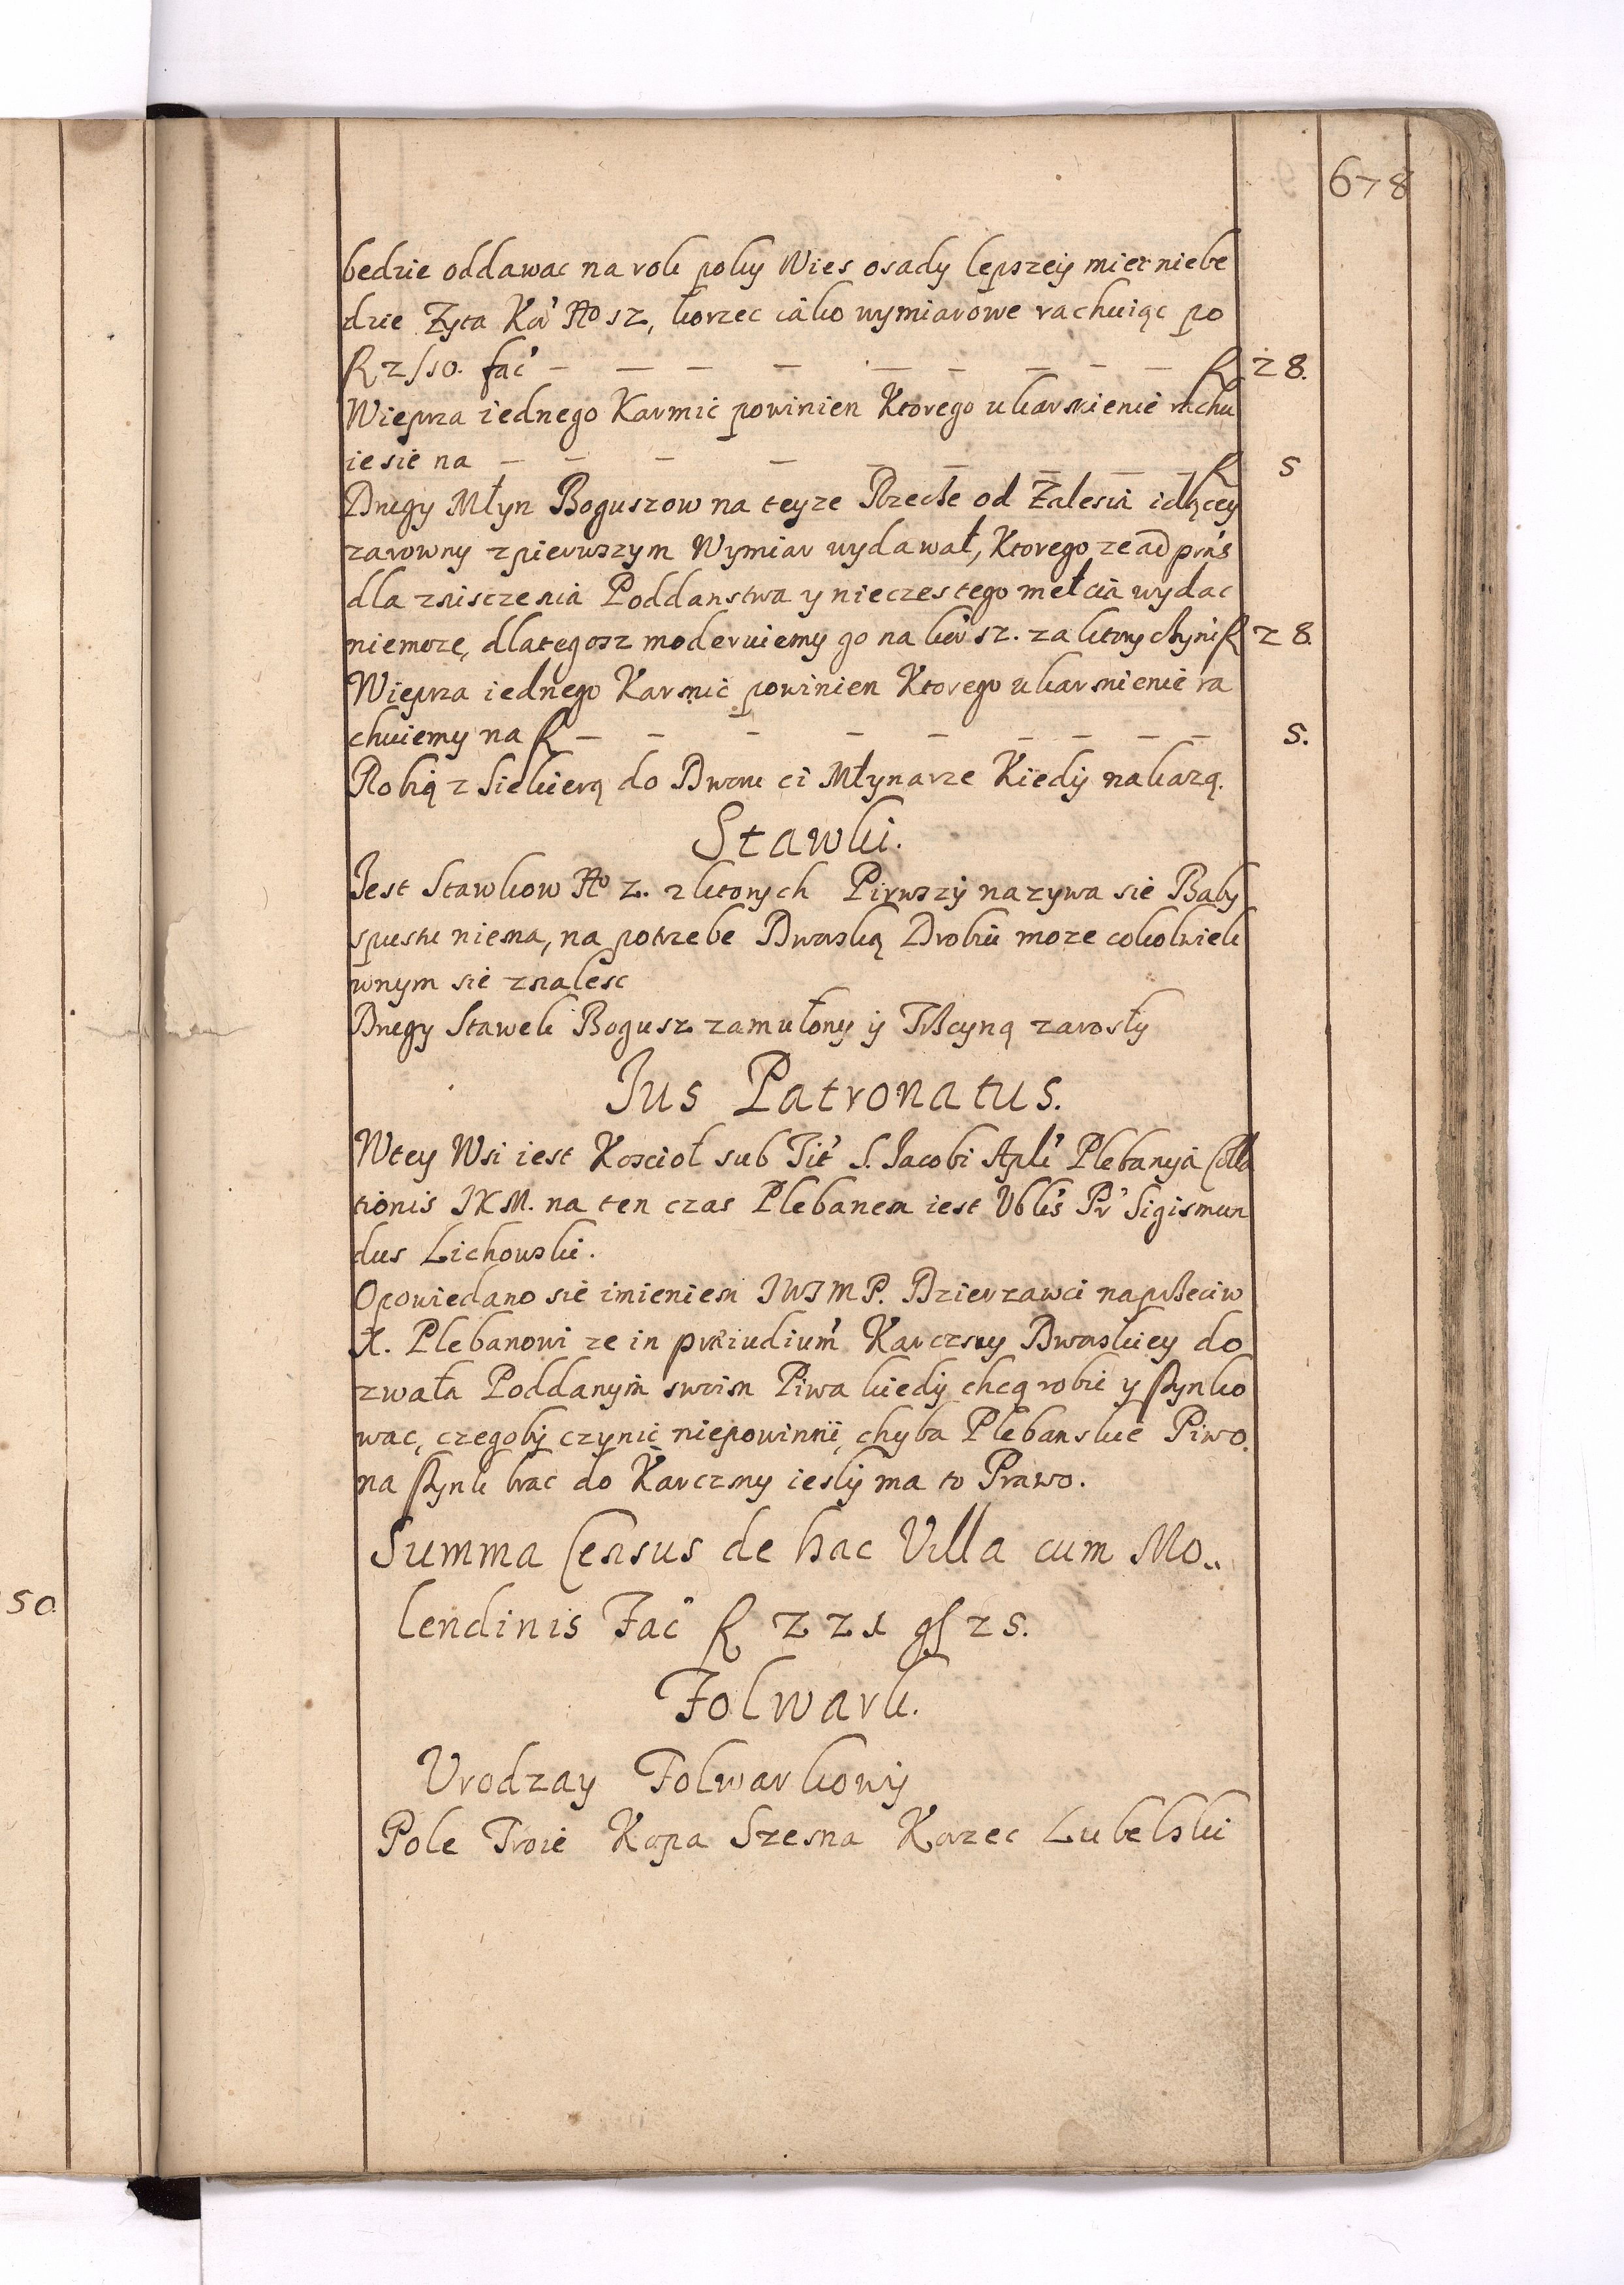 678
bedzie oddawac na rok poky Wies osady lepszey miec niebe
dzie Zyta Kor No 12, korzec iako wymiarowe rachuiąc po
fl 2/10. fac — — — — — — — — — fl 28.
Wieprza iednego Karmic powinien Ktorego ukarmienie rachu
ie sie na — — — — — — — — fl 5
Drugy Młyn Boguszow na teyze Rzecze od Zalesia idącey
zarowny z pierwszym Wymiar wydawał, Ktorego ze ad pns
dla zniszczenia Poddanstwa y nieczestego mełcia wydac
niemoze, dlategosz moderuiemy go na kor 12. za ktory czyni fl 28.
Wieprza iednego Karmic powinien Ktorego ukarmienie ra
chuiemy na fl — — — — — — — — — 5.
Robią z Siekierą do Dworu ci Młynarze Kiedy nakazą.
Stawki.
Jest Stawkow No 2. z ktorych Pirwszy nazywa sie Baby
spustu niema, na potrzebe Dworską Drobiu moze cokolwiek
wnym sie znalesc
Drugy Stawek Bogusz zamułony y Trzcyną zarosły
Jus Patronatus.
Wtey Wsi iest Kościoł sub Tit S. Jacobi Apli Plebanya Colla
tionis JKM. na ten czas Plebanem iest Vblis Pr Sigismun
dus Lichowski.
Opowiedano sie imieniem JWJMP. Dzierzawci naprzeciw
X. Plebanowi ze in praeiudium Karczmy Dworskiey do
zwała Poddanym swoim Piwa kiedy chcą robic y szynko
wac, czegoby czynic niepowinni, chyba Plebanskie Piwo
na szynk brac do Karczmy iesly ma to Prawo.
Summa Census de hac Villa cum Mo..
lendinis Fac fl 221 gs 25.
Folwark.
Vrodzay Folwarkowy
Pole Troie Kopa Szesna Korzec Lubelski
50.